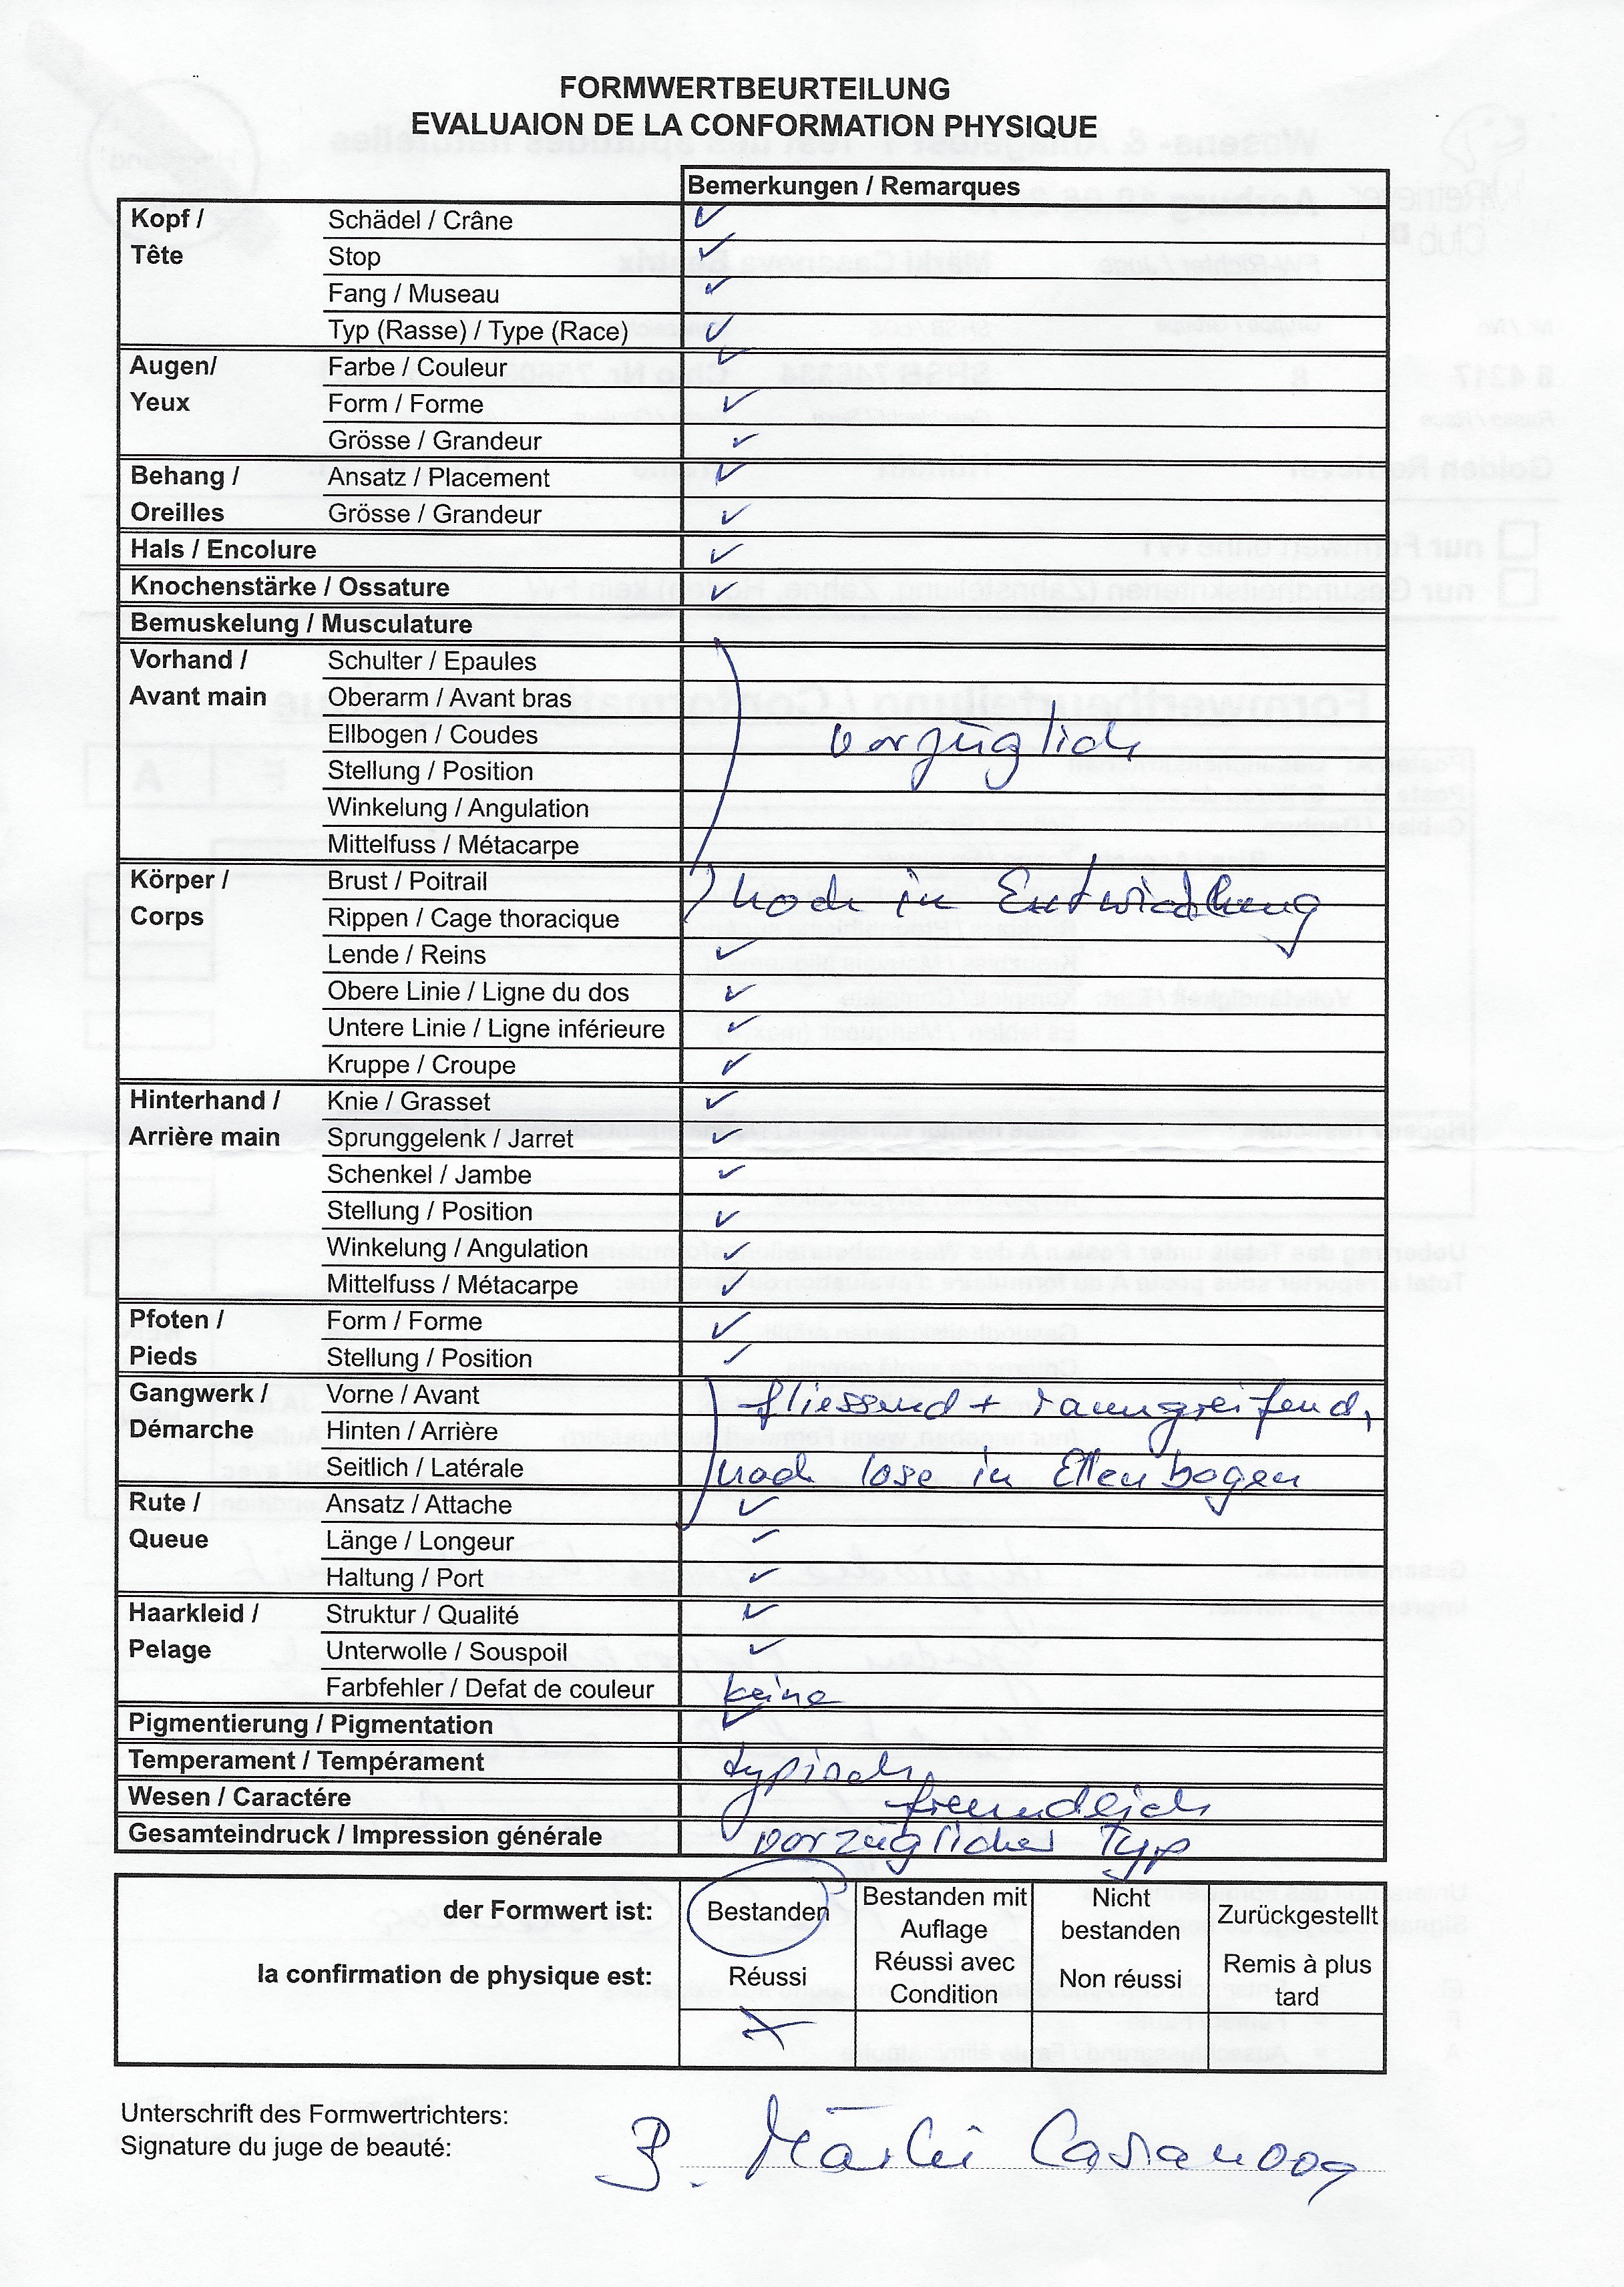 FORMWERTBEURTEILUNG
EVALUAION DE LA CONFORMATION PHYSIQUE
Bemerkungen / Remarques
Kopf / Schädel / Crâne ✓
Tête Stop ✓
Fang / Museau ✓
Typ (Rasse) / Type (Race) ✓
Augen/ Farbe / Couleur ✓
Yeux Form / Forme ✓
Grösse / Grandeur ✓
Behang / Ansatz / Placement ✓
Oreilles Grösse / Grandeur ✓
Hals / Encolure ✓
Knochenstärke / Ossature ✓
Bemuskelung / Musculature
Vorhand / Schulter / Epaules
Avant main Oberarm / Avant bras
Ellbogen / Coudes vorzüglich
Stellung / Position
Winkelung / Angulation
Mittelfuss / Métacarpe
Körper / Brust / Poitrail noch in Entwicklung
Corps Rippen / Cage thoracique
Lende / Reins ✓
Obere Linie / Ligne du dos ✓
Untere Linie / Ligne inférieure ✓
Kruppe / Croupe ✓
Hinterhand / Knie / Grasset ✓
Arrière main Sprunggelenk / Jarret ✓
Schenkel / Jambe ✓
Stellung / Position ✓
Winkelung / Angulation ✓
Mittelfuss / Métacarpe ✓
Pfoten / Form / Forme ✓
Pieds Stellung / Position ✓
Gangwerk / Vorne / Avant fliessend + raumgreifend,
Démarche Hinten / Arrière
Seitlich / Latérale noch lose in Ellenbogen
Rute / Ansatz / Attache ✓
Queue Länge / Longeur ✓
Haltung / Port ✓
Haarkleid / Struktur / Qualité ✓
Pelage Unterwolle / Souspoil ✓
Farbfehler / Defat de couleur keine
Pigmentierung / Pigmentation ✓
Temperament / Tempérament typisch,
Wesen / Caractére freundlich
Gesamteindruck / Impression générale vorzüglicher Typ
der Formwert ist: Bestanden Bestanden mit Auflage Nicht bestanden Zurückgestellt
la confirmation de physique est: Réussi Réussi avec Condition Non réussi Remis à plus tard
X
Unterschrift des Formwertrichters:
Signature du juge de beauté: B. Märki Casanova